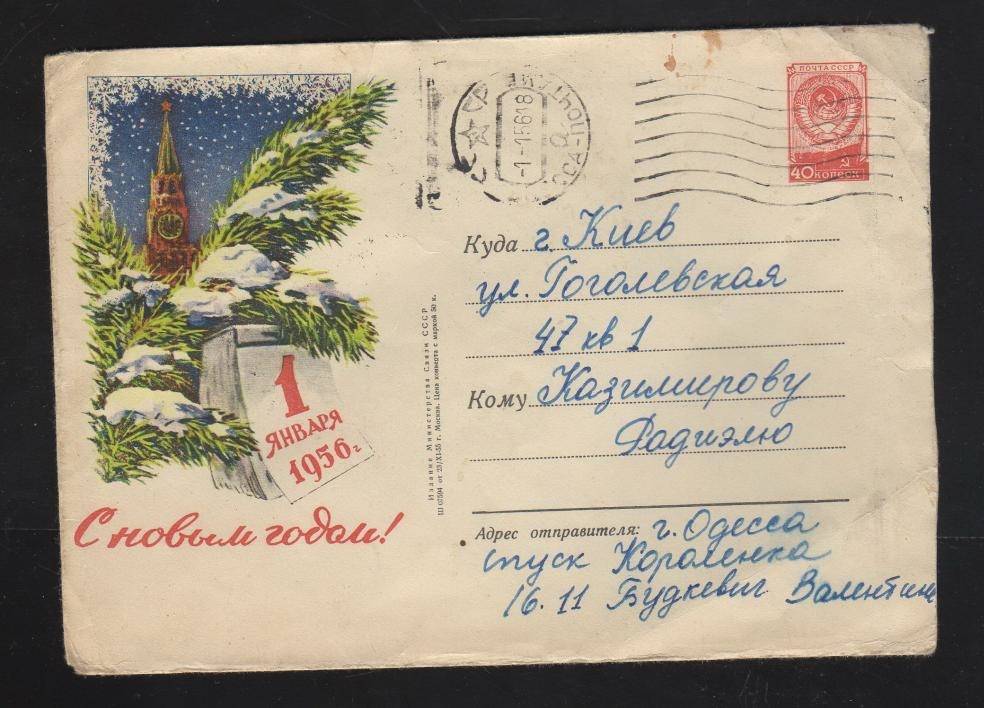 ПОЧТА СССР
40 КОПЕЕК
-1-1 5618
Куда г. Киев
ул. Гоголевская
47 кв 1
Кому Казимирову
Фадиэлю
Адрес отправителя: г. Одесса
спуск Короленка
16. 11 Будкевич Валентине
1
ЯНВАРЯ
1956 г
С новым годом!
Издание Министерства Связи СССР
Ш 07594 от 23/XI-55 г. Москва. Цена конверта с маркой 50 к.